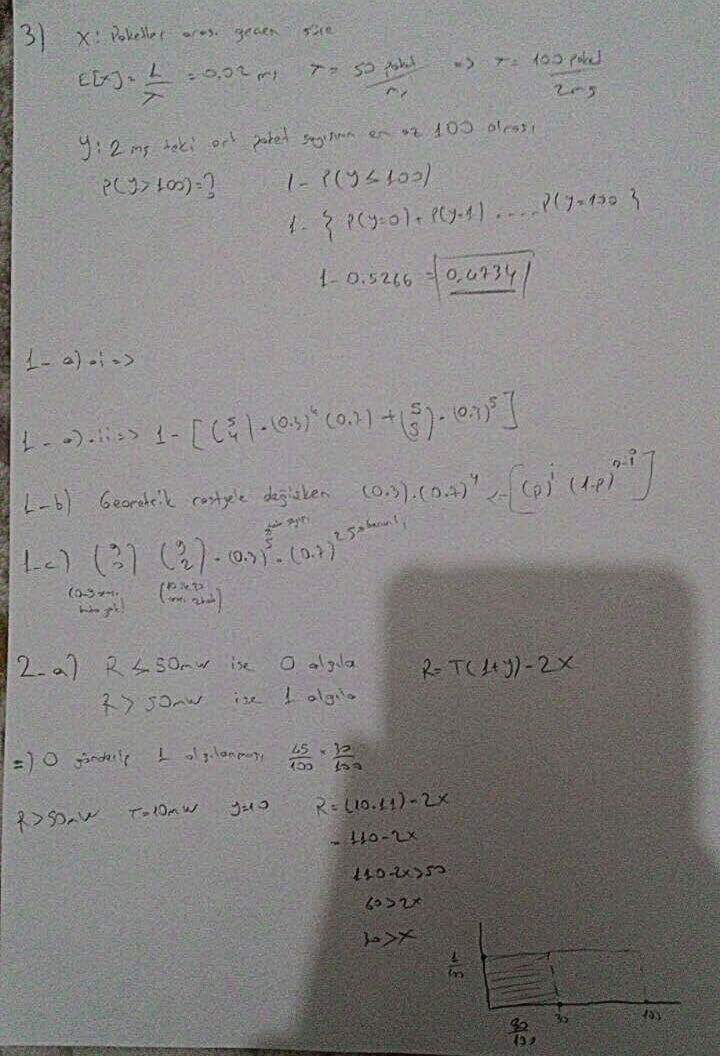 3) X: Paketler arası geçen süre
E[X] = 1/r = 0,02 ms r = 50 paket/ms => r = 100 paket/2ms
y: 2 ms teki ort paket sayısının en az 100 olması
P(y>100)=? 1 - P(y≤100)
1 - { P(y=0) + P(y=1) ..... P(y=100 }
1 - 0.5266 = 0,4734
1 - a) .i =>
1 - a) .ii => 1 - [(5 4) . (0.3)^4 (0.7) + (5 5) . (0.3)^5]
1-b) Geometrik rastgele değişken (0.3).(0.7)^4 <- [(p)^i (1-p)^n-i]
1-c) (9 0) (9 2) . (0.3)^5 . (0.7)^25
2-a) R ≤ 50mW ise 0 algıla R = T(1+y) - 2X
R > 50mW ise 1 algıla
=) 0 gönderip 1 algılanması 45/100 . 30/100
R > 50mW T=10mW y=10 R = (10.11) - 2X
= 110 - 2X
110 - 2X > 50
60 > 2X
30 > X
1/100
30 100
30/100